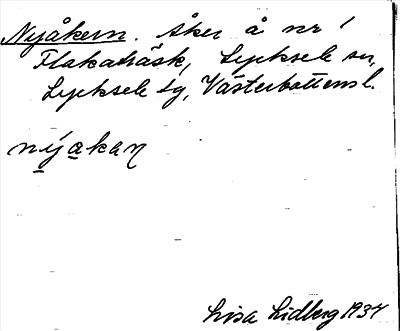 Nyåkern. Åker å nr 1
Flakaträsk, Lycksele sn,
Lycksele lg, Västerbottens l.
nýakaṇ
Lisa Lidberg 1937